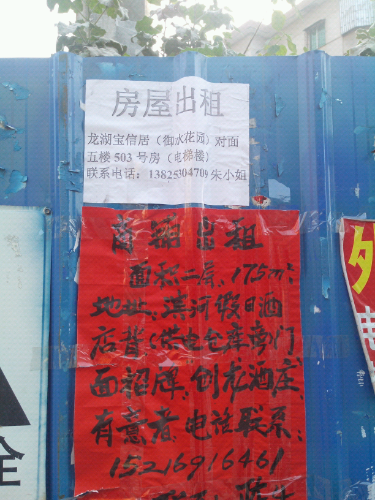 房屋出租
龙湖宝信居（御水花园）对面
五楼 503 号房（电梯楼）
联系电话：13825304709 朱小姐
商铺出租
面积二层，175m²
地址：滨河假日酒
店背（供电仓库旁门
面招牌，创龙酒庄
有意者，电话联系：
15216916461
外
全